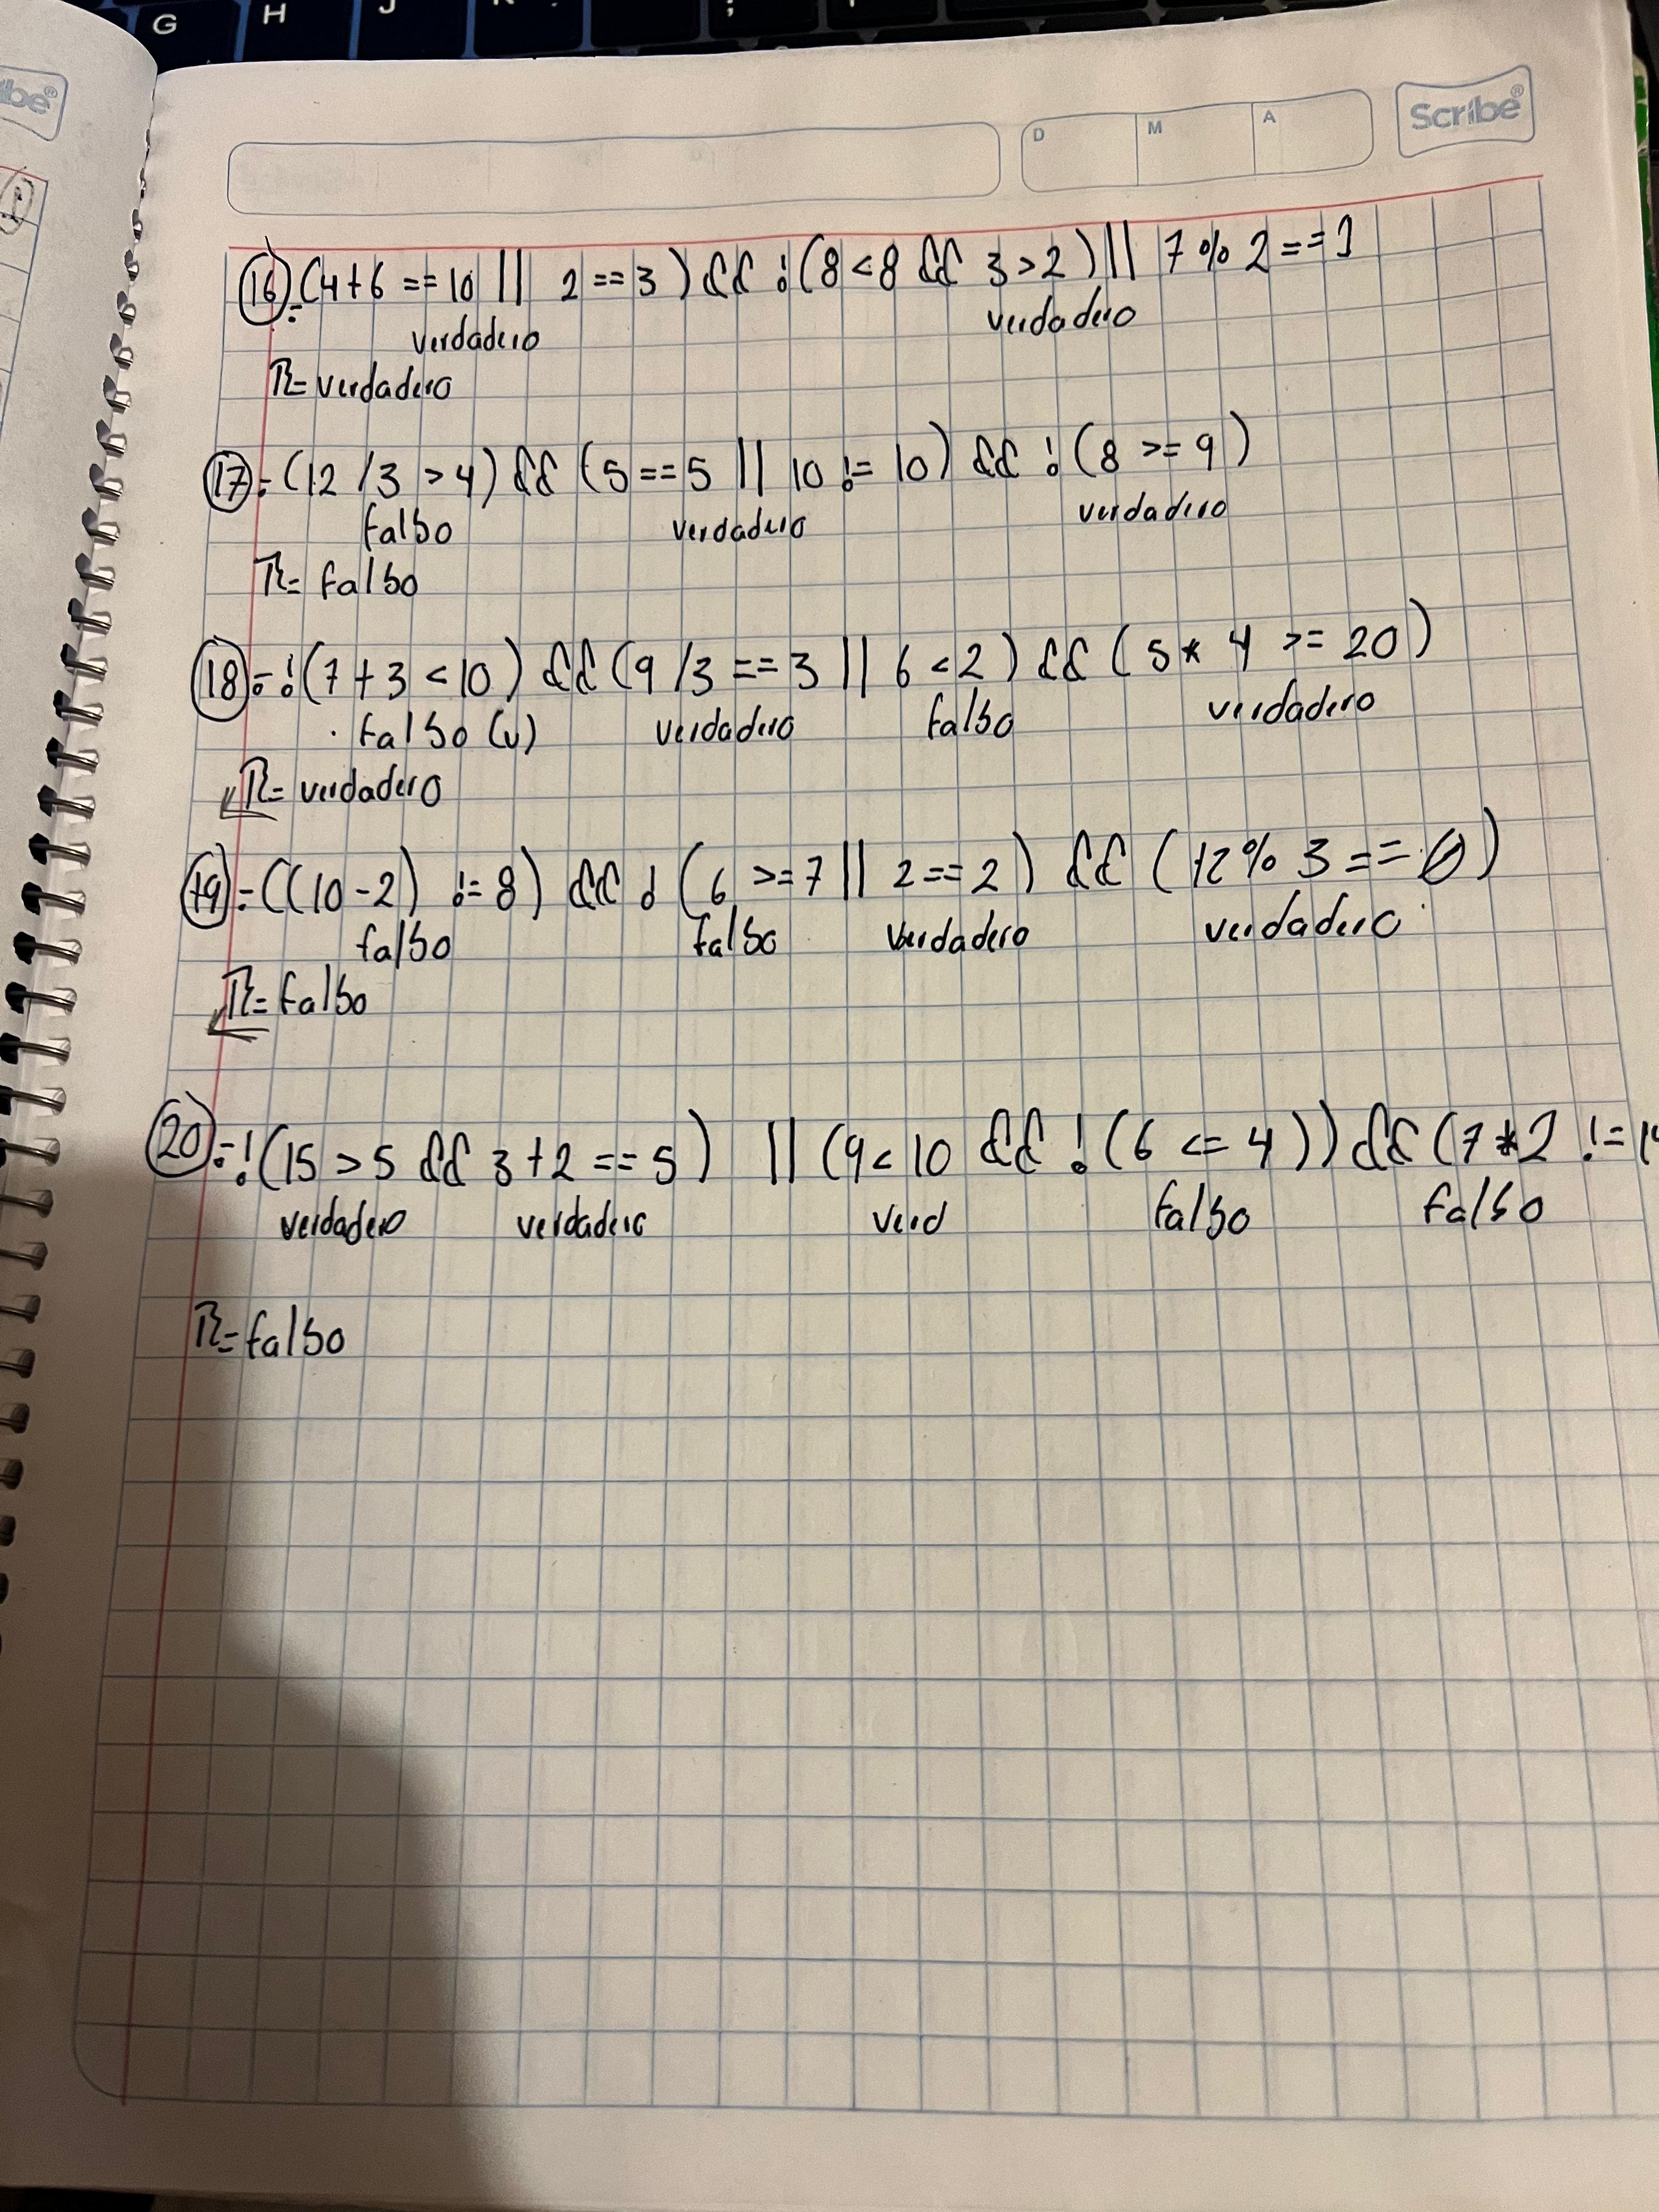 G H J K ;
Scribe®
D M A
be®
16.- (4+6 == 10 || 2 == 3) && !(8 < 8 && 3 > 2) || 7 % 2 == 1
verdadero verdadero
R= verdadero
17.- (12 / 3 > 4) && (5 == 5 || 10 != 10) && !(8 >= 9)
falso verdadero verdadero
R= falso
18.- !(7 + 3 < 10) && (9 / 3 == 3 || 6 < 2) && (5 * 4 >= 20)
falso (v) verdadero falso verdadero
R= verdadero
19.- ((10 - 2) != 8) && !(6 >= 7 || 2 == 2) && (12 % 3 == 0)
falso falso verdadero verdadero
R= falso
20.- !(15 > 5 && 3 + 2 == 5) || (9 < 10 && !(6 <= 4)) && (7 * 2 != 14
verdadero verdadero verd falso falso
R= falso